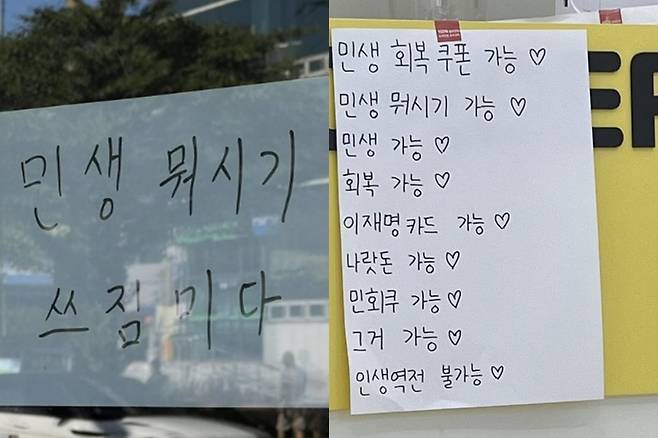 민생 뭐시기
쓰짐미다
민생 회복 쿠폰 가능 ♡
민생 뭐시기 가능 ♡
민생 가능 ♡
회복 가능 ♡
이재명카드 가능 ♡
나랏돈 가능 ♡
민회쿠 가능 ♡
그거 가능 ♡
인생역전 불가능 ♡
ER